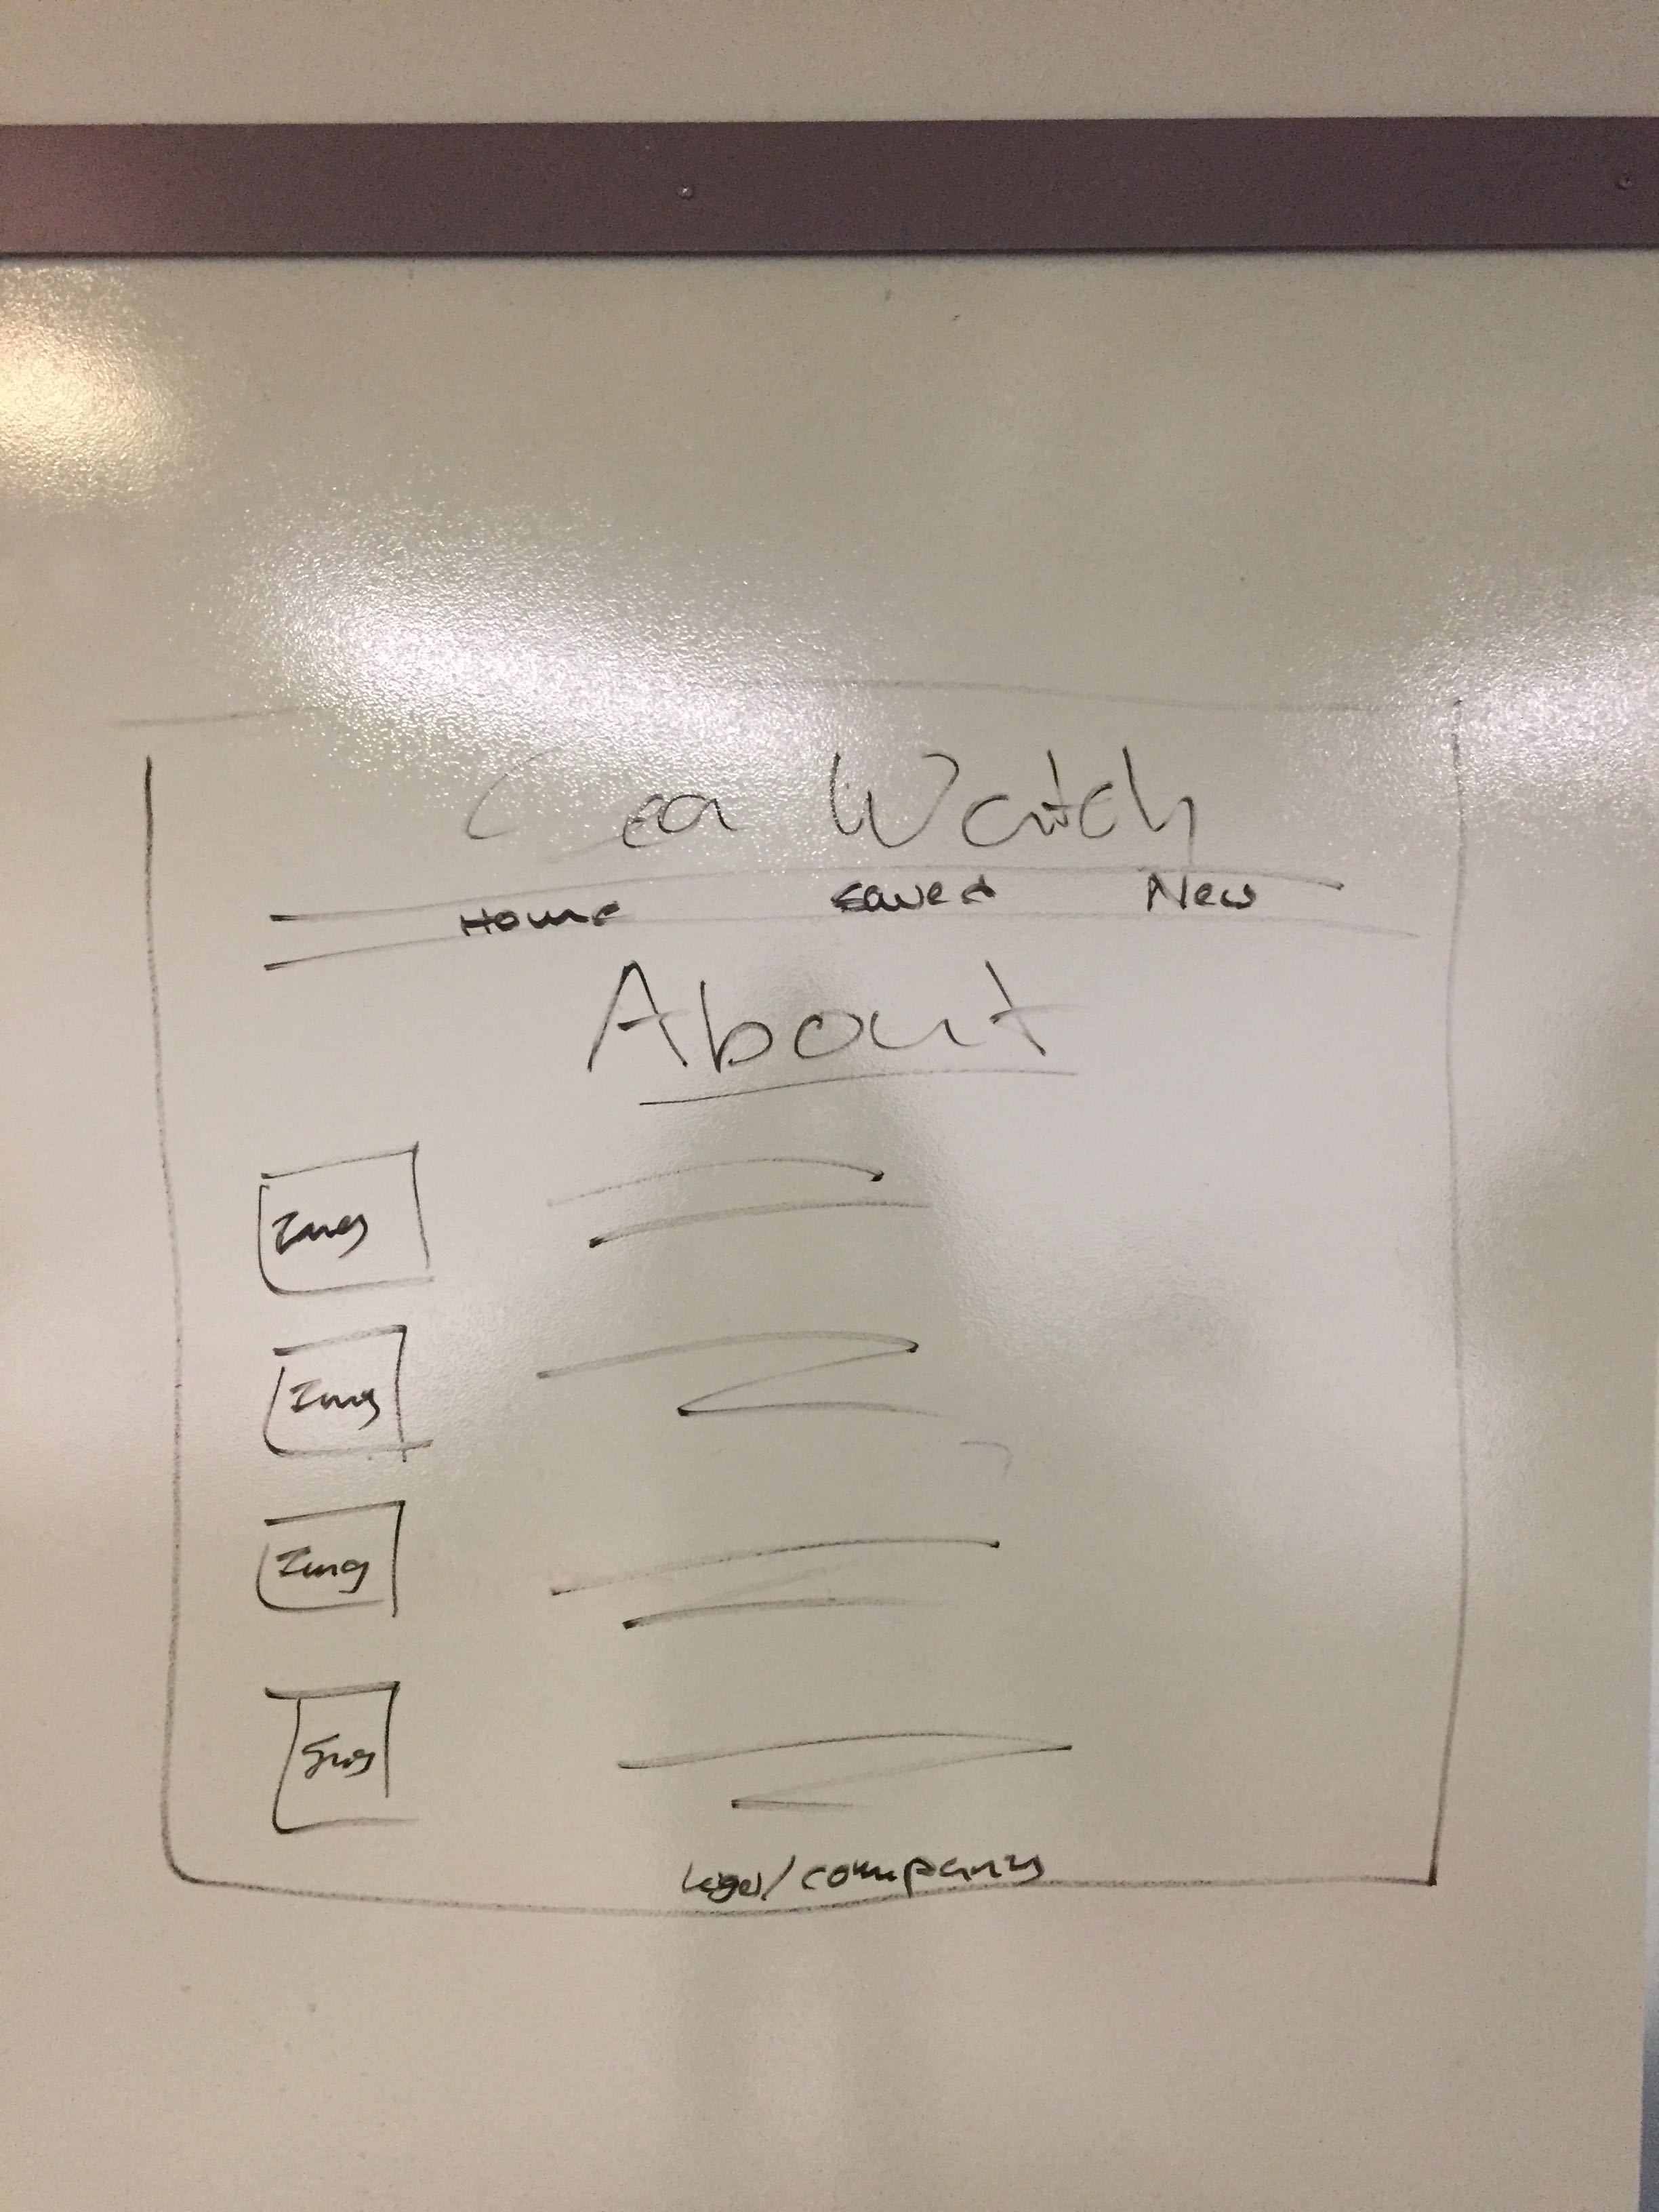 Watch
Home Saved New
About
Img
Img
Img
Img
/company